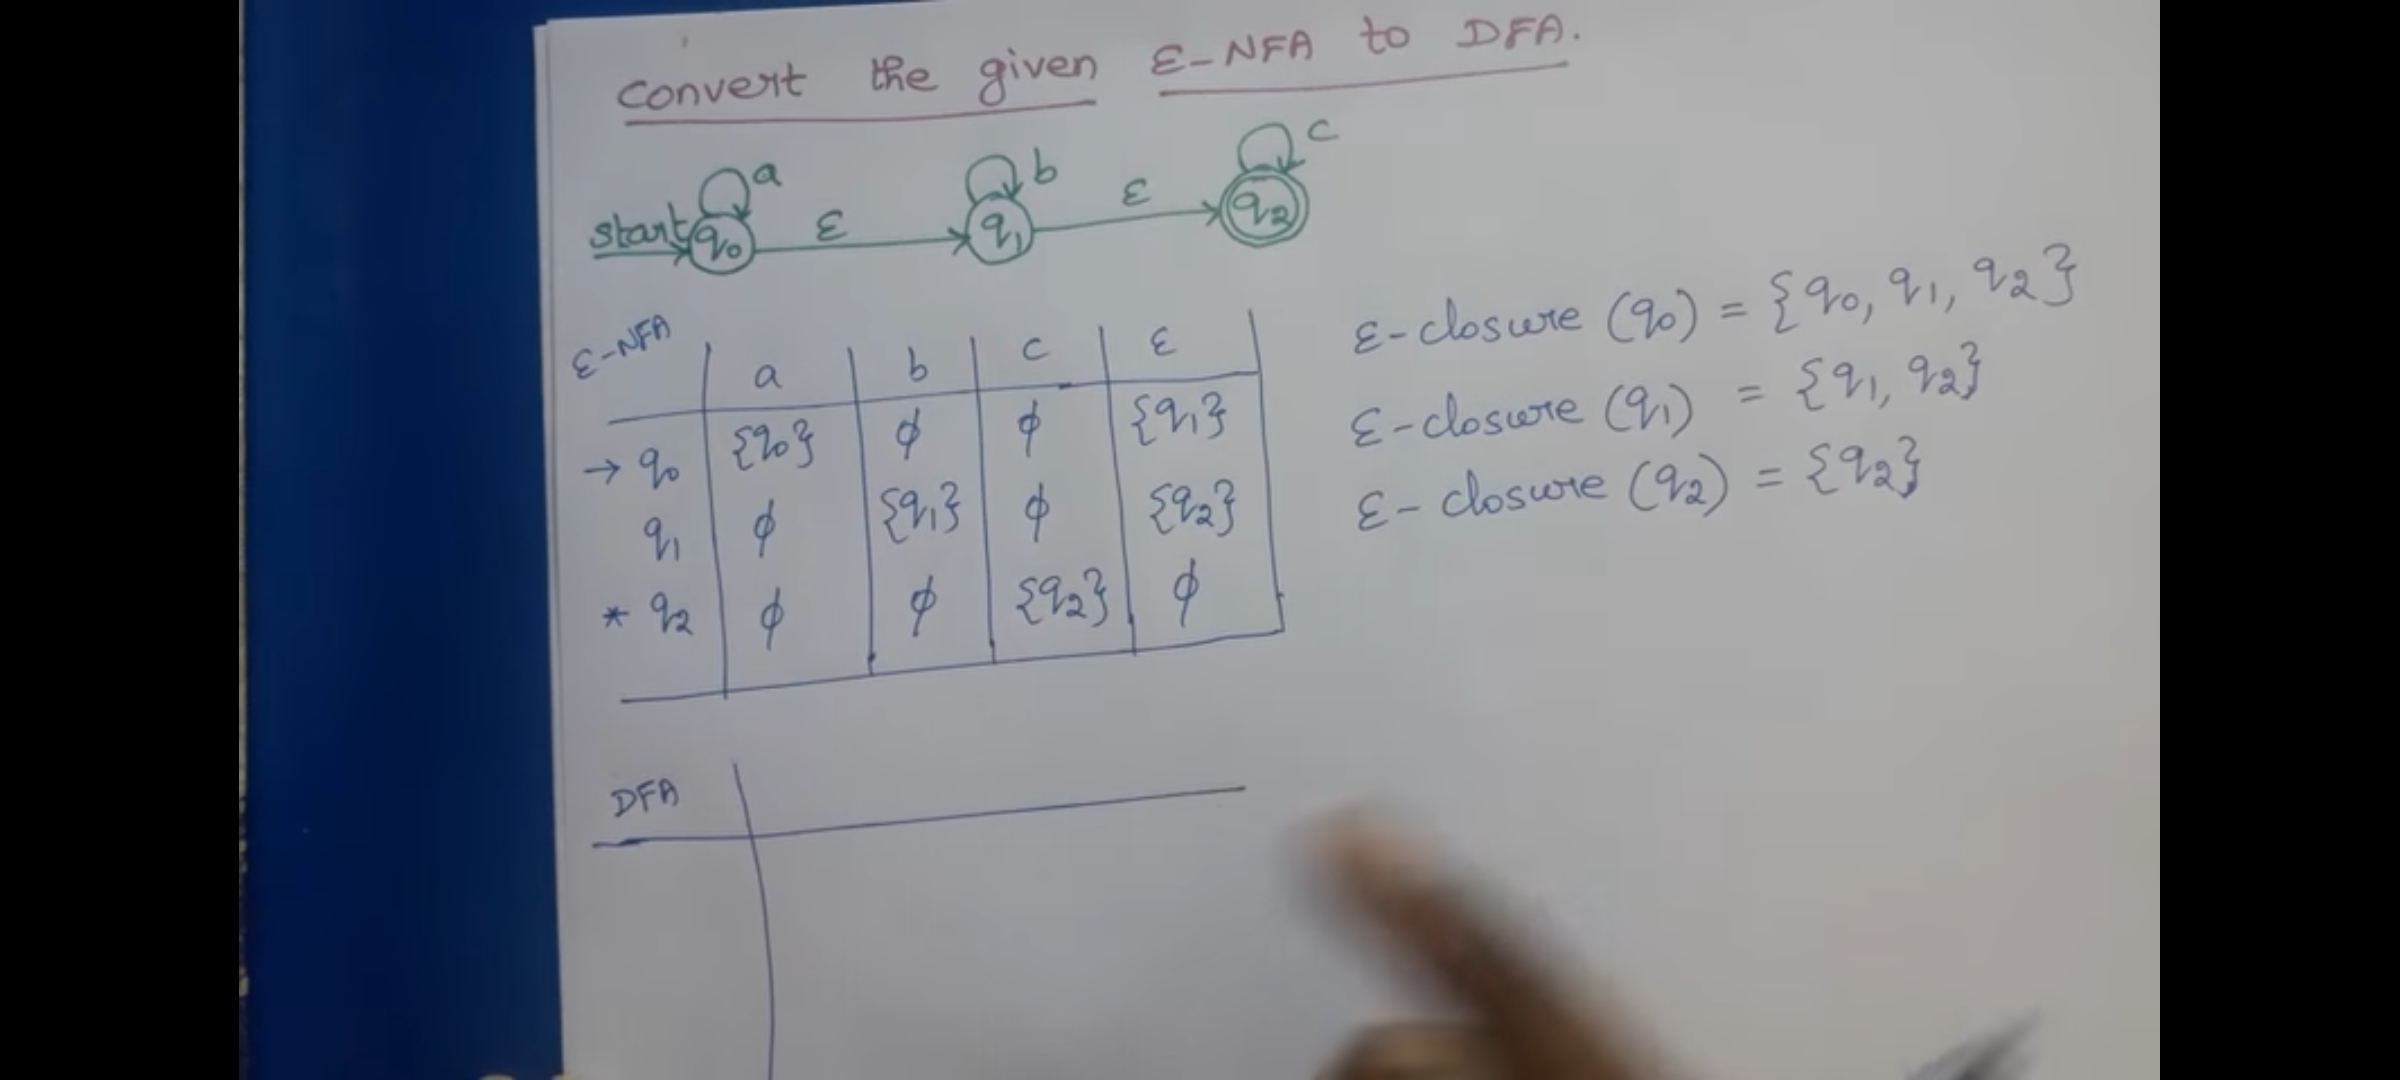 Convert the given ε-NFA to DFA.
a b c
start q0 ε q1 ε q2
ε-NFA a b c ε
→ q0 {q0} ϕ ϕ {q1}
q1 ϕ {q1} ϕ {q2}
* q2 ϕ ϕ {q2} ϕ
ε-closure (q0) = {q0, q1, q2}
ε-closure (q1) = {q1, q2}
ε-closure (q2) = {q2}
DFA